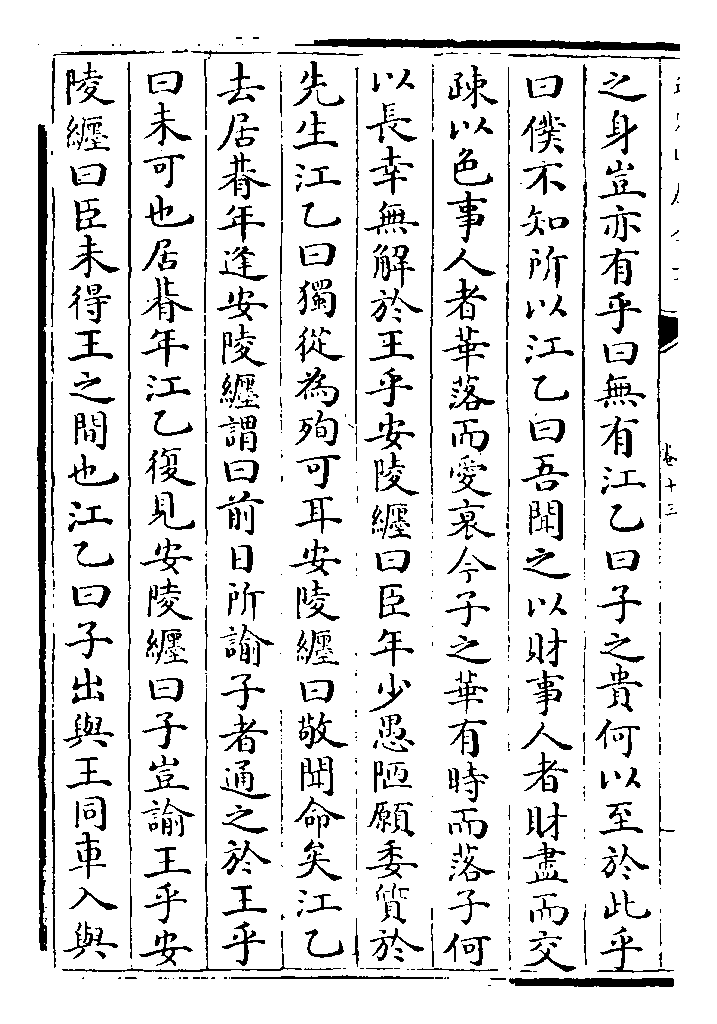 之身豈亦有乎曰無有江乙曰子之貴何以至於此乎
曰僕不知所以江乙曰吾聞之以財事人者財盡而交
疎以色事人者華落而愛衰今子之華有時而落子何
以長幸無解於王乎安陵纒曰臣年少愚陋願委質於
先生江乙曰獨從為殉可耳安陵纒曰敬聞命矣江乙
去居朞年逢安陵纒謂曰前日所諭子者通之於王乎
曰未可也居朞年江乙復見安陵纒曰子豈諭王乎安
陵纒曰臣未得王之間也江乙曰子出與王同車入與
卷十三